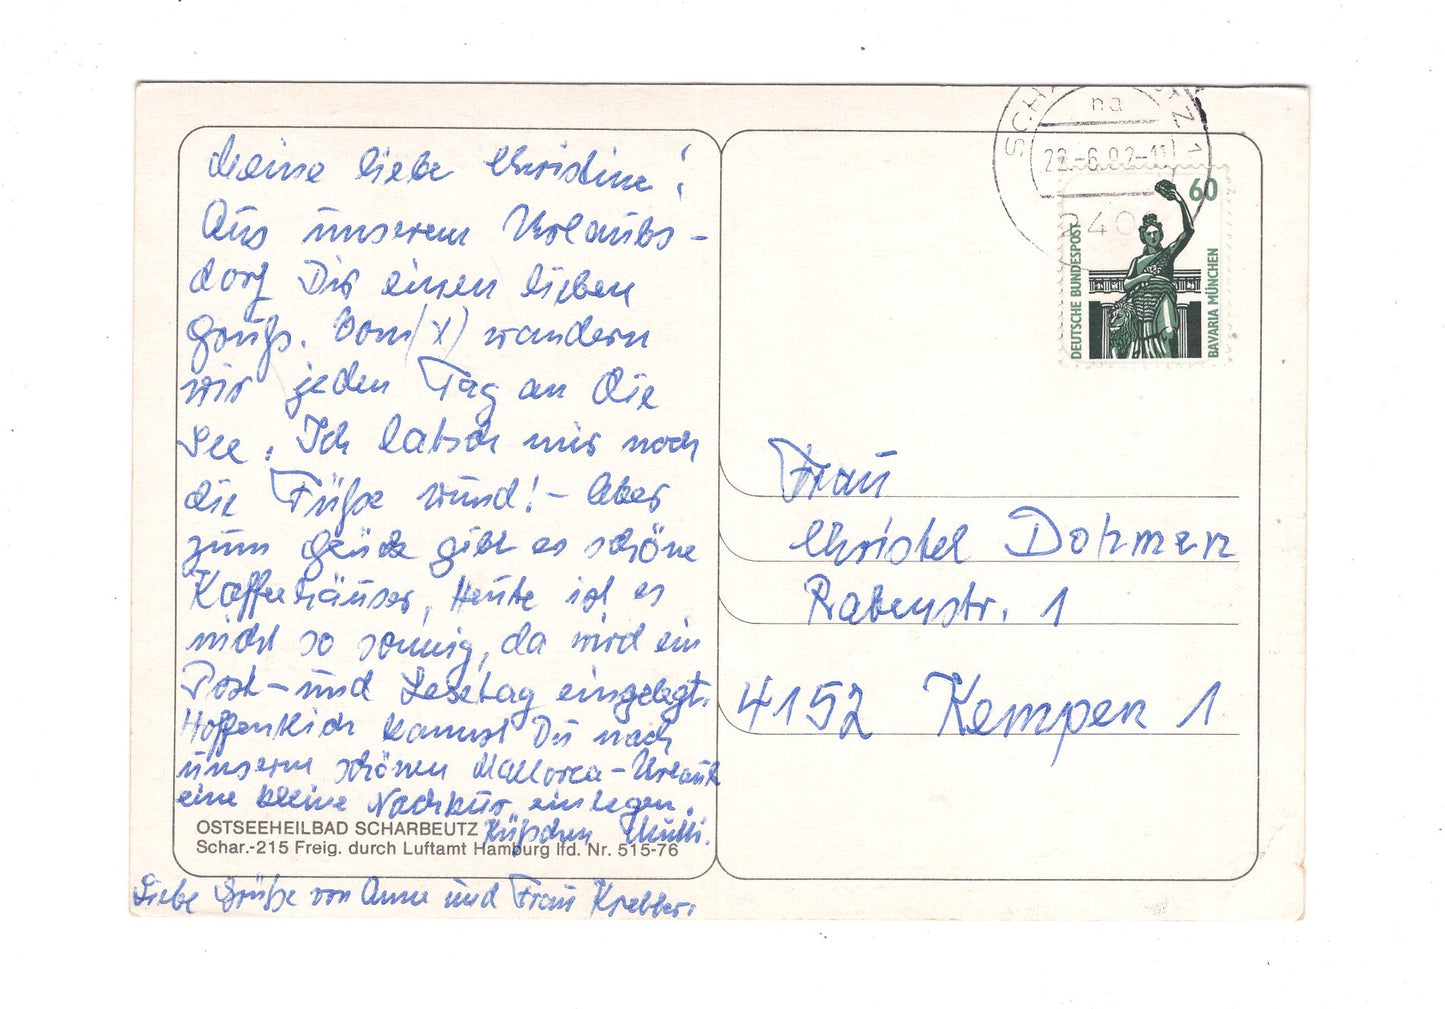 Meine liebe Christine!
Aus unserem Urlaubs-
dorf Dir einen lieben
Gruß. Vom (X) wandern
wir jeden Tag an die
See. Ich latsch mir noch
die Füße wund! - Aber
zum Glück gibt es schöne
Kaffeehäuser, Heute ist es
nicht so sonnig, da wird ein
Post- und Lesetag eingelegt.
Hoffentlich kannst Du nach
unserm schönen Mallorca-Urlaub
eine kleine Nachkur einlegen.
Küßchen Mutti.
OSTSEEHEILBAD SCHARBEUTZ
Schar.-215 Freig. durch Luftamt Hamburg lfd. Nr. 515-76
Liebe Grüße von Anne und Frau Krebber.
na
22.-6.92-11
240
60
DEUTSCHE BUNDESPOST
BAVARIA MÜNCHEN
Frau
Christel Dohmen
Rabenstr. 1
4152 Kempen 1